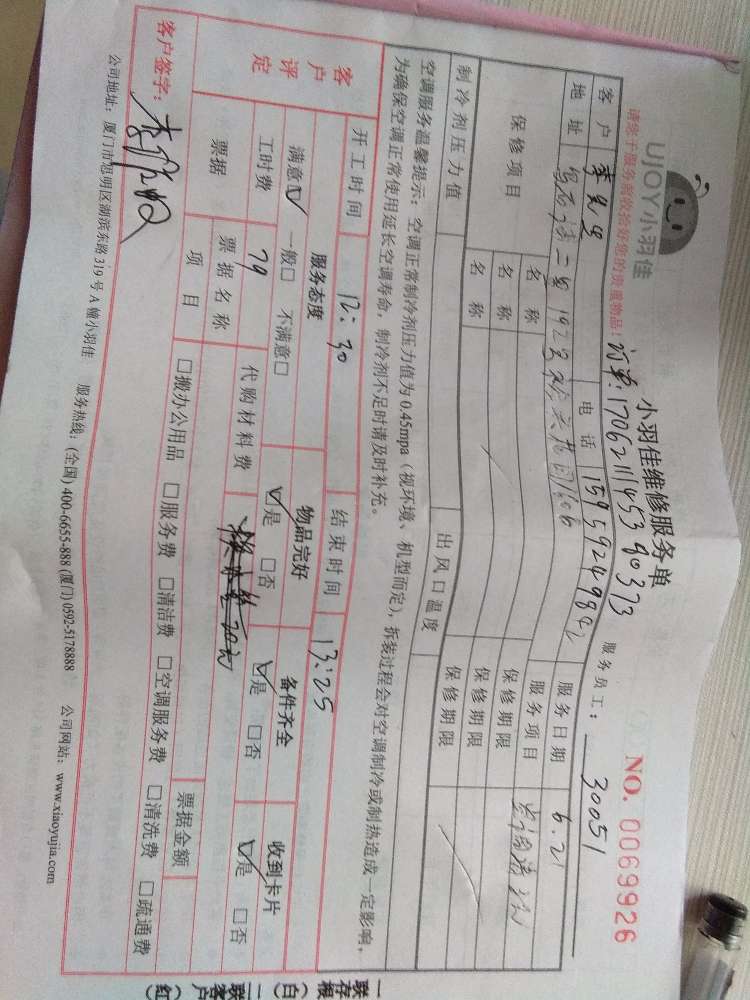 UJOY小羽佳
小羽佳维修服务单
NO. 0069926
请您于服务前收拾好您的贵重物品!
订单:1706211145390373
服务员工: 30051
客户 电话 服务日期 6.21
地址 二里192号 1606 服务项目
保修项目 名称 保修期限
名称 保修期限
名称 保修期限
制冷剂压力值 出风口温度
空调服务温馨提示:空调正常制冷剂压力值为0.45mpa(视环境、机型而定),拆装过程会对空调制冷或制热造成一定影响,
为确保空调正常使用延长空调寿命,制冷剂不足时请及时补充。
开工时间 12:30 结束时间 13:25
客户评定 服务态度 物品完好 备件齐全 收到卡片
满意☑ 一般□ 不满意□ ☑是 □否 ☑是 □否 ☑是 □否
工时费 79 代购材料费
票据 票据名称 票据金额
项目 □搬办公用品 □服务费 □清洁费 □空调服务费 □清洗费 □疏通费
客户签字:
公司地址:厦门市思明区湖滨东路319号A幢小羽佳 服务热线:(全国) 400-6655-888 (厦门) 0592-5178888 公司网站:www.xiaoyujia.com
一联存根(白) 二联客户(红)